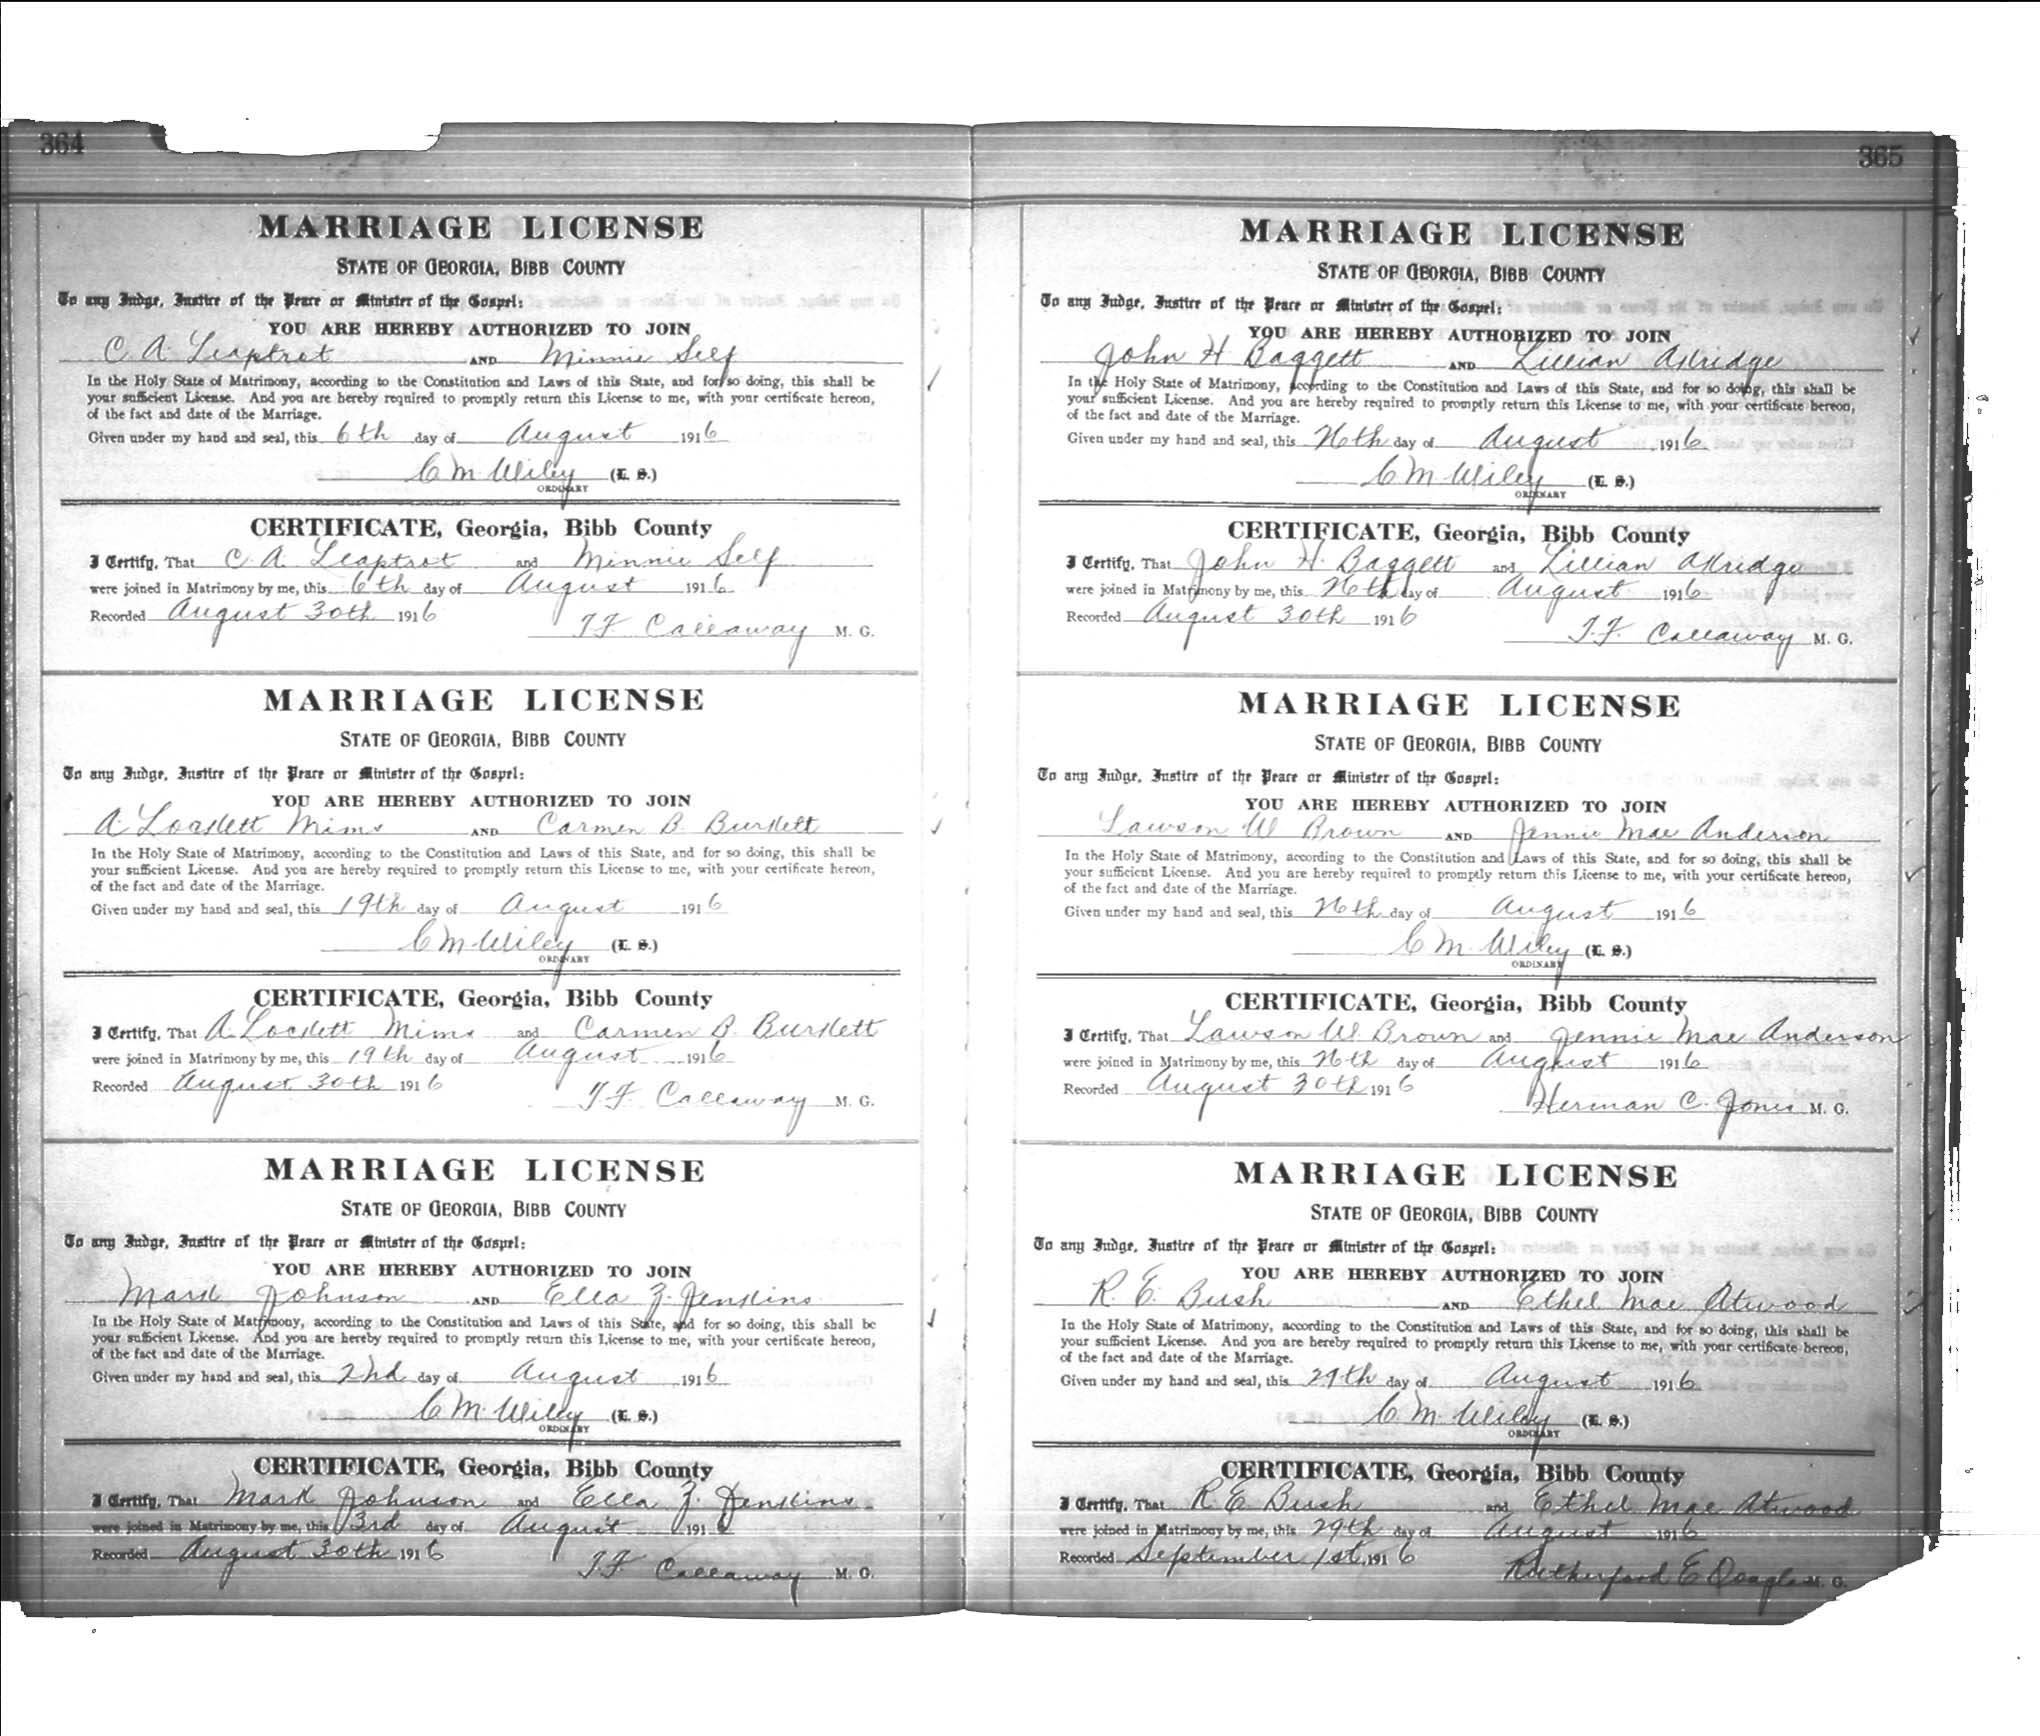 364
MARRIAGE LICENSE
STATE OF GEORGIA, BIBB COUNTY
To any Judge, Justice of the Peace or Minister of the Gospel:
YOU ARE HEREBY AUTHORIZED TO JOIN
C. A. Leaptrot AND Minnie Self
In the Holy State of Matrimony, according to the Constitution and Laws of this State, and for so doing, this shall be
your sufficient License. And you are hereby required to promptly return this License to me, with your certificate hereon,
of the fact and date of the Marriage.
Given under my hand and seal, this 6th day of August 1916
C M Wiley (L. S.)
ORDINARY
CERTIFICATE, Georgia, Bibb County
I Certify, That C. A. Leaptrot and Minnie Self
were joined in Matrimony by me, this 6th day of August 1916
Recorded August 30th 1916
T. F. Callaway M. G.
MARRIAGE LICENSE
STATE OF GEORGIA, BIBB COUNTY
To any Judge, Justice of the Peace or Minister of the Gospel:
YOU ARE HEREBY AUTHORIZED TO JOIN
A. Lockett Mims AND Carmen B. Burkett
In the Holy State of Matrimony, according to the Constitution and Laws of this State, and for so doing, this shall be
your sufficient License. And you are hereby required to promptly return this License to me, with your certificate hereon,
of the fact and date of the Marriage.
Given under my hand and seal, this 19th day of August 1916
C M Wiley (L. S.)
ORDINARY
CERTIFICATE, Georgia, Bibb County
I Certify, That A. Lockett Mims and Carmen B. Burkett
were joined in Matrimony by me, this 19th day of August 1916
Recorded August 30th 1916
T. F. Callaway M. G.
MARRIAGE LICENSE
STATE OF GEORGIA, BIBB COUNTY
To any Judge, Justice of the Peace or Minister of the Gospel:
YOU ARE HEREBY AUTHORIZED TO JOIN
Mark Johnson AND Ella Z. Jenkins
In the Holy State of Matrimony, according to the Constitution and Laws of this State, and for so doing, this shall be
your sufficient License. And you are hereby required to promptly return this License to me, with your certificate hereon,
of the fact and date of the Marriage.
Given under my hand and seal, this 2nd day of August 1916
C M Wiley (L. S.)
ORDINARY
CERTIFICATE, Georgia, Bibb County
I Certify, That Mark Johnson and Ella Z. Jenkins
were joined in Matrimony by me, this 3rd day of August 1916
Recorded August 30th 1916
T. F. Callaway M. G.
365
MARRIAGE LICENSE
STATE OF GEORGIA, BIBB COUNTY
To any Judge, Justice of the Peace or Minister of the Gospel:
YOU ARE HEREBY AUTHORIZED TO JOIN
John H Baggett AND Lillian Akridge
In the Holy State of Matrimony, according to the Constitution and Laws of this State, and for so doing, this shall be
your sufficient License. And you are hereby required to promptly return this License to me, with your certificate hereon,
of the fact and date of the Marriage.
Given under my hand and seal, this 26th day of August 1916
C M Wiley (L. S.)
ORDINARY
CERTIFICATE, Georgia, Bibb County
I Certify, That John H. Baggett and Lillian Akridge
were joined in Matrimony by me, this 26th day of August 1916
Recorded August 30th 1916
T. F. Callaway M. G.
MARRIAGE LICENSE
STATE OF GEORGIA, BIBB COUNTY
To any Judge, Justice of the Peace or Minister of the Gospel:
YOU ARE HEREBY AUTHORIZED TO JOIN
Lawson W Brown AND Jennie Mae Anderson
In the Holy State of Matrimony, according to the Constitution and Laws of this State, and for so doing, this shall be
your sufficient License. And you are hereby required to promptly return this License to me, with your certificate hereon,
of the fact and date of the Marriage.
Given under my hand and seal, this 26th day of August 1916
C M. Wiley (L. S.)
ORDINARY
CERTIFICATE, Georgia, Bibb County
I Certify, That Lawson W. Brown and Jennie Mae Anderson
were joined in Matrimony by me, this 26th day of August 1916
Recorded August 30th 1916
Herman C. Jones M. G.
MARRIAGE LICENSE
STATE OF GEORGIA, BIBB COUNTY
To any Judge, Justice of the Peace or Minister of the Gospel:
YOU ARE HEREBY AUTHORIZED TO JOIN
R. E. Bush AND Ethel Mae Atwood
In the Holy State of Matrimony, according to the Constitution and Laws of this State, and for so doing, this shall be
your sufficient License. And you are hereby required to promptly return this License to me, with your certificate hereon,
of the fact and date of the Marriage.
Given under my hand and seal, this 29th day of August 1916
C. M. Wiley (L. S.)
ORDINARY
CERTIFICATE, Georgia, Bibb County
I Certify, That R. E. Bush and Ethel Mae Atwood
were joined in Matrimony by me, this 29th day of August 1916
Recorded September 1st, 1916
Rutherford E Douglas M. G.